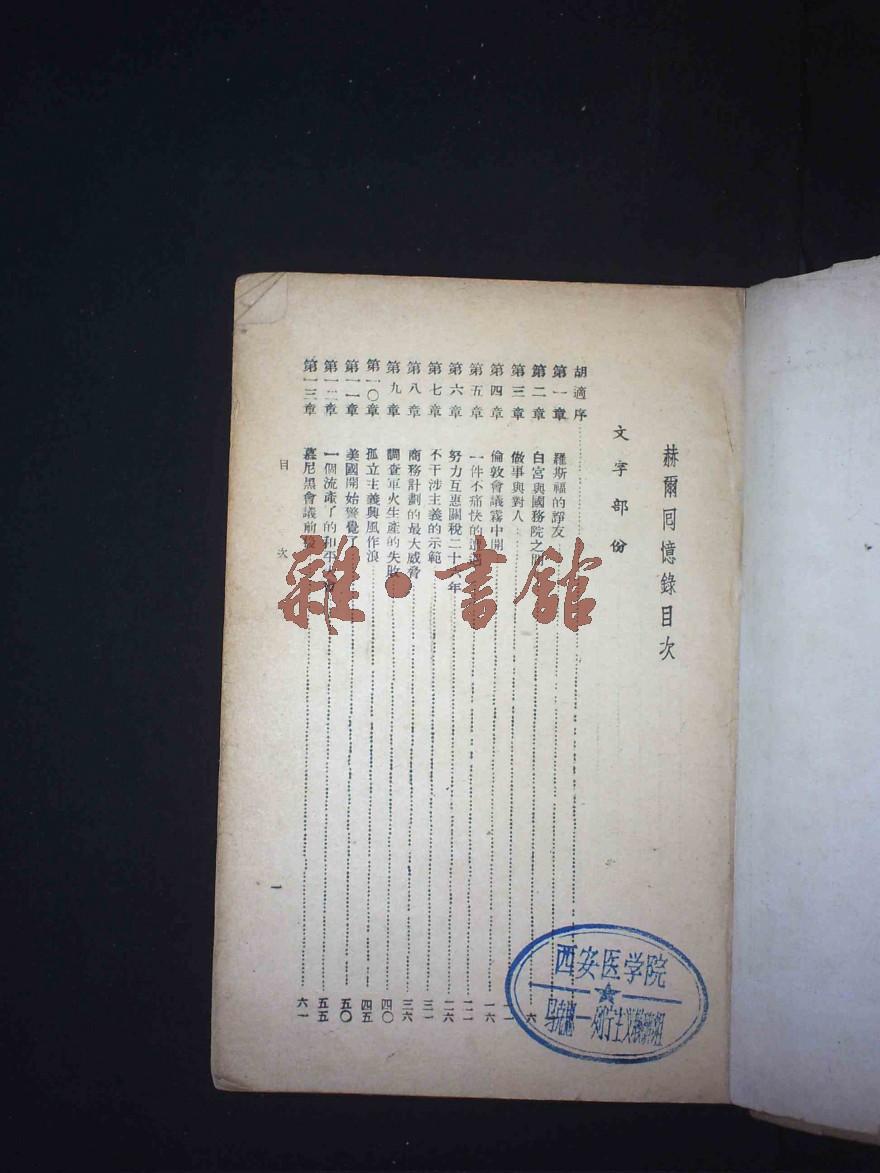 赫爾囘憶錄目次
文字部份
胡適序
第一章 羅斯福的諍友
第二章 白宮與國務院之間 六
第三章 做事與對人 一一
第四章 倫敦會議霧中開 一六
第五章 一件不痛快的遭遇 二一
第六章 努力互惠關稅二十六年 二六
第七章 不干涉主義的示範 三一
第八章 商務計劃的最大威脅 三六
第九章 調查軍火生產的失敗 四〇
第一〇章 孤立主義興風作浪 四五
第一一章 美國開始警覺了 五〇
第一二章 一個流產了的和平 五五
第一三章 慕尼黑會議前後 六一
目次
一
雜·書館
西安医学院
马克思—列宁主义教研组